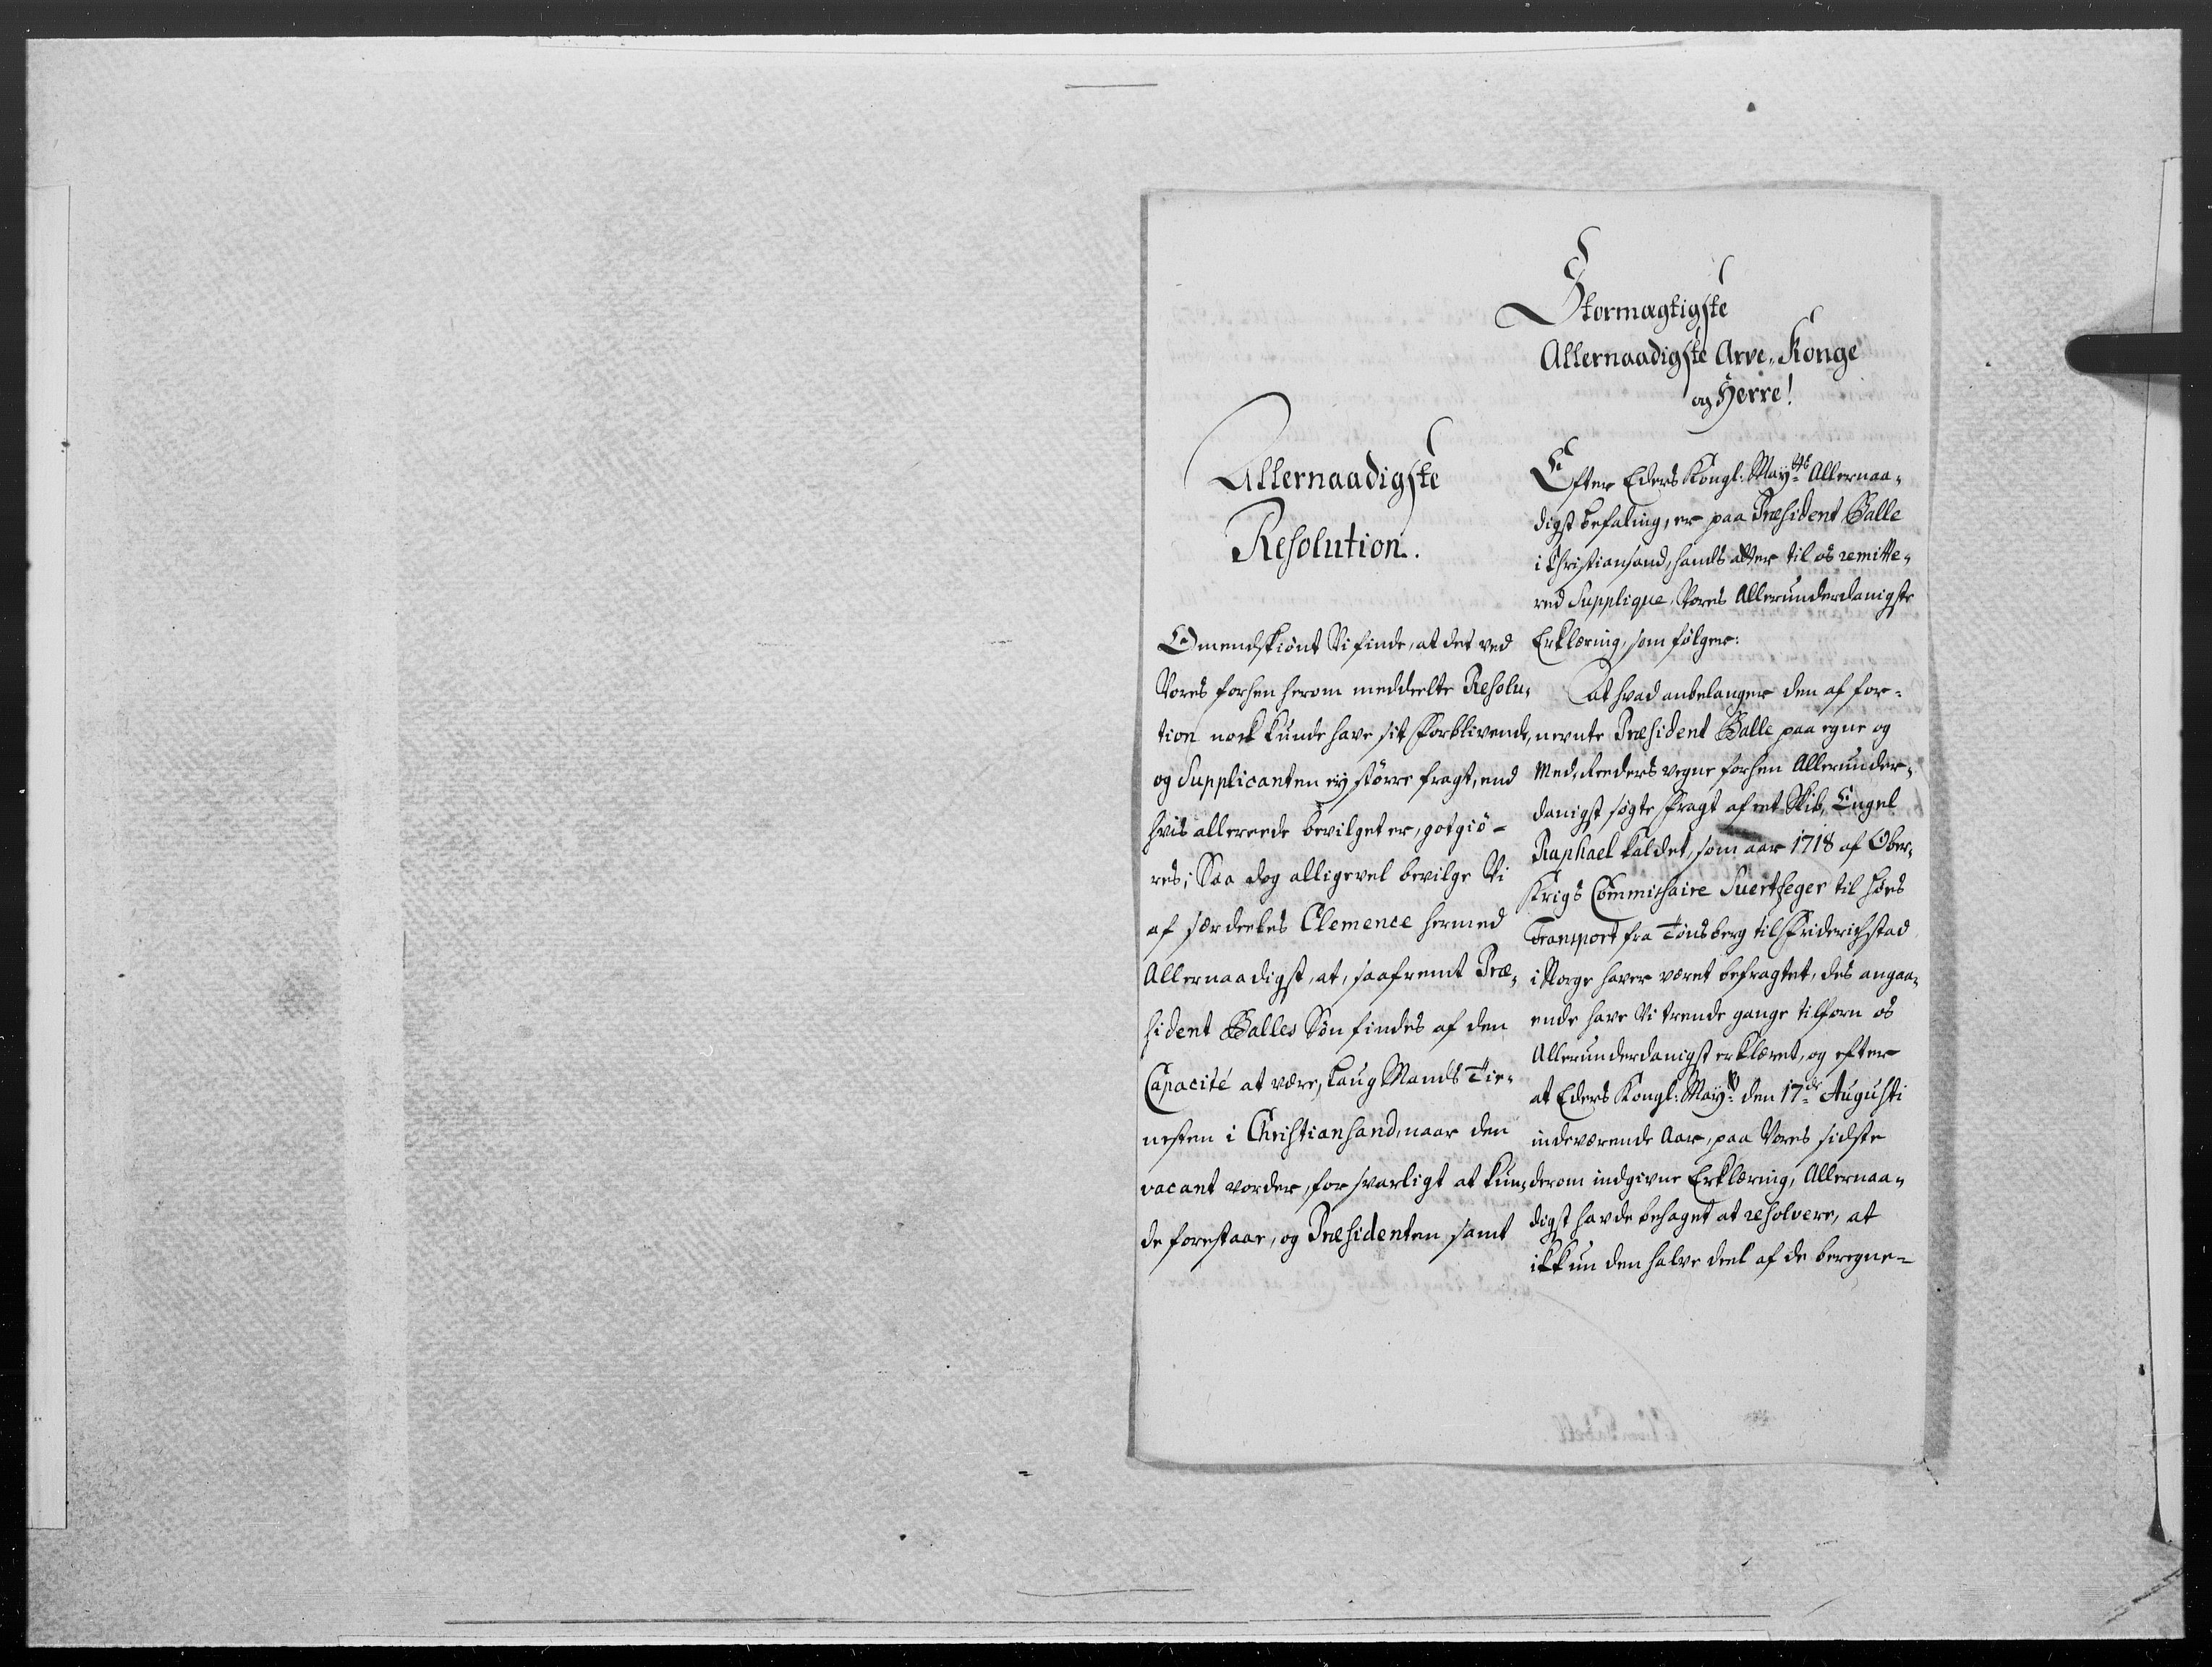 Stormagtigste
Allernaadigste Arve-Konge
og Herre!
Allernaadigste
Resolution.
Omendskiönt Vi finde, at det ved
Vores forhen herom meddeelte Resolu-
tion nock kunde have sit Forblivende,
og Supplicanten ej större fragt, end
hvis allereede bevilget er, gotgiö-
res; Saa dog alligevel bevilge Vi
af særdeeles Clemence hermed
Allernaadigst, at, saafremt Præ-
sident Balles Sön findes af den
Capacité at være, Laug Mands Tie-
nesten i Christiansand, naar den
vacant vorder, forsvarligt at kun-
de forestaae, og Præsidenten samt
Efter Eders Kongl: Mayts Allernaa-
digst befaling, er paa Præsident Balle
i Christiansand, hands atter til os remitte-
red Supplique, Vores Allerunderdanigste
Erklæring, som fölger:
At hvad anbelanger den af for-
nevnte Præsident Balle paa egne og
Med-Reeders vegne forhen Allerunder-
danigst sögte Fragt af et Skib, Engel
Raphael kaldet, som aar 1718 af Ober-
Krigs Commissaire Suertfeger til Höes
Transport fra Tönsberg til Friderichstad
i Norge haver været befragtet, des angaa-
ende have Vi trende gange tilforn os
Allerunderdanigst erklæret, og efter
at Eders Kongl: Mayt den 17de Augusti
indeværende Aar, paa Vores sidste
derom indgivne Erklæring, Allernaa-
digst havde behaget at resolvere, at
ikkun den halve deel af de beregne-